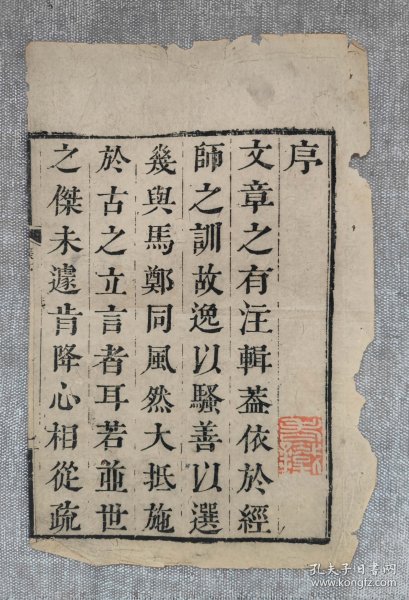 序
文章之有注輯葢依於經
師之訓故逸以騷善以選
幾與馬鄭同風然大抵施
於古之立言者耳若並世
之傑未遽肯降心相從疏
孔夫子旧书网
www.kongfz.com